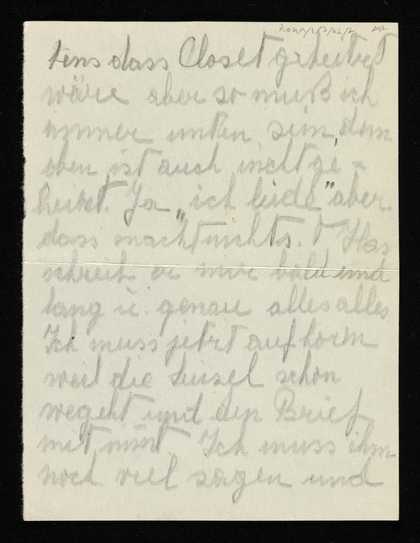 tens dass Closet geheitzt
wäre aber so muß ich
immer unten sein, denn
oben ist auch nicht ge-
heitzt. Ja „ich leide" aber
dass macht nichts.
schreib er mir bald und
lang u. genau alles alles
Ich muss jetzt aufhören
weil die Liesel schon
weggeht und den Brief
mit nimt Ich muss ihm
noch viel sagen und